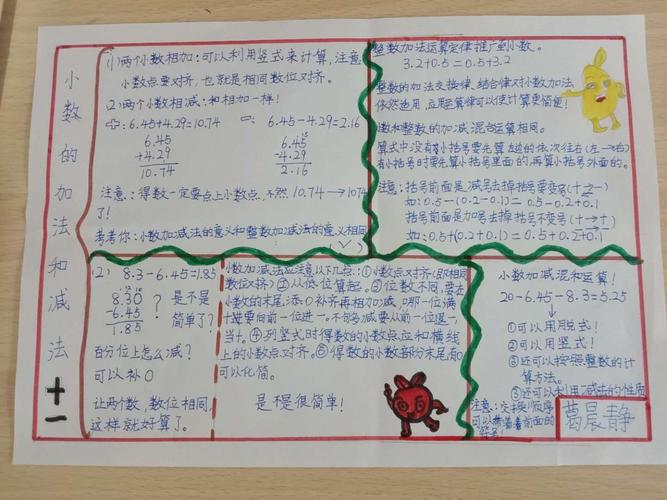 小数的加法和减法
+
一
(1)两个小数相加:可以利用竖式来计算,注意
小数点要对齐,也就是相同数位对齐。
(2)两个小数相减:和相加一样!
6.45+4.29=10.74
6.45-4.29=2.16
6.45
+4.29
10.74
6.45
-4.29
2.16
注意:得数一定要点上小数点,不然10.74→1074
了!
考考你:小数加减法的意义和整数加减法的意义相同
(✓)
整数加法运算定律推广到小数。
3.2+0.5=0.5+3.2
整数的加法交换律、结合律对小数加法
依然适用,应用运算律可以使计算更简便!
小数和整数的加减混合运算相同。
算式中没有小括号要先算左边的依次往右(左→右)
有小括号时要先算小括号里面的,再算小括号外面的。
注意:括号前面是减号去掉括号要变号(+→-)
如:0.5-(0.2-0.1)=0.5-0.2+0.1
括号前面是加号去掉括号不变号(+→+)
如:0.5+(0.2+0.1)=0.5+0.2+0.1
(2) 8.3-6.45=1.85
8.30
-6.45
1.85
? 是不是
简单了?
百分位上怎么减?
可以补0
让两个数,数位相同,
这样就好算了。
小数加减法应注意以下几点:①小数点对齐(即相同
数位对齐)②从低位算起。③位数不同,要在
小数的末尾,添0补齐再相加减,哪一位满
十就要向前一位进一。不够减要从前一位退一
当十。④列竖式时得数的小数点应和横线
上的小数点对齐。⑤得数的小数部分末尾有0
可以化简。
是不是很简单!
小数加减混和运算!
20-6.45-8.3=5.25
①可以用脱式!
②可以用竖式!
③还可以按照整数的计
算方法。
③还可以利用减法的性质
注意:交换顺序
可以带着前面的
符号!
葛晨静